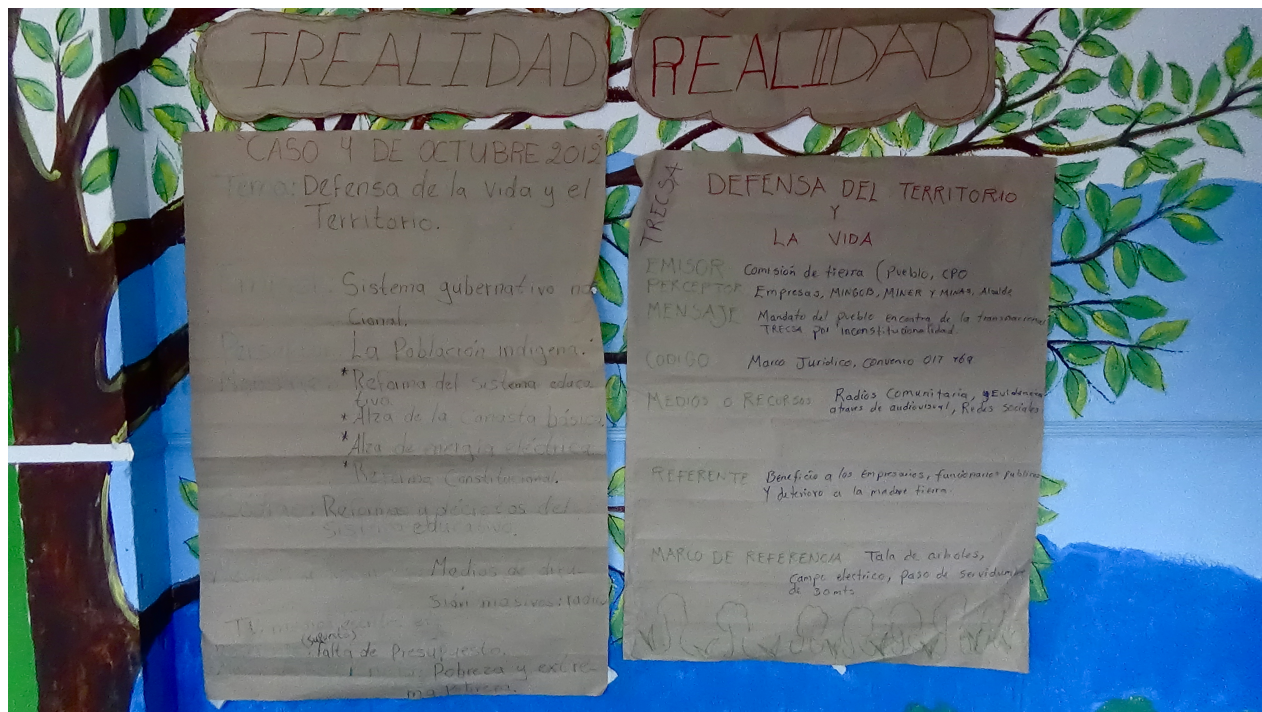 IREALIDAD
CASO 4 DE OCTUBRE 2012
Tema: Defensa de la vida y el
Territorio.
Sistema gubernativo na
cional.
La Población indígena.
* Reforma del sistema educa
tiva
* Alza de la Canasta básica
* Alza de energia eléctrica
* Reforma Constitucional.
Reformas y decretos del
Sistema educativo.
Medios de difu-
sión masivos: radio
TV.
(supuesto)
Falta de Presupuesto.
Pobreza y extre-
ma Pobreza.
REALIIDAD
TRECSA
DEFENSA DEL TERRITORIO
Y
LA VIDA
EMISOR Comisión de tierra (Pueblo, CPO
PERCEPTOR Empresas, MINGOB, MINER Y MINAS, Alcalde
MENSAJE Mandato del pueblo encontra de la transnacional
TRECSA por inconstitucionalidad.
CODIGO Marco Jurídico, convenio 017 169
MEDIOS O RECURSOS Radios Comunitaria, Evidencia
atraves de audiovisual, Redes sociales
REFERENTE Beneficio a los Empresarios, funcionarios publico
Y deterioro a la madre tierra.
MARCO DE REFERENCIA Tala de arboles,
campo electrico, paso de servidumbre
de 30 mts